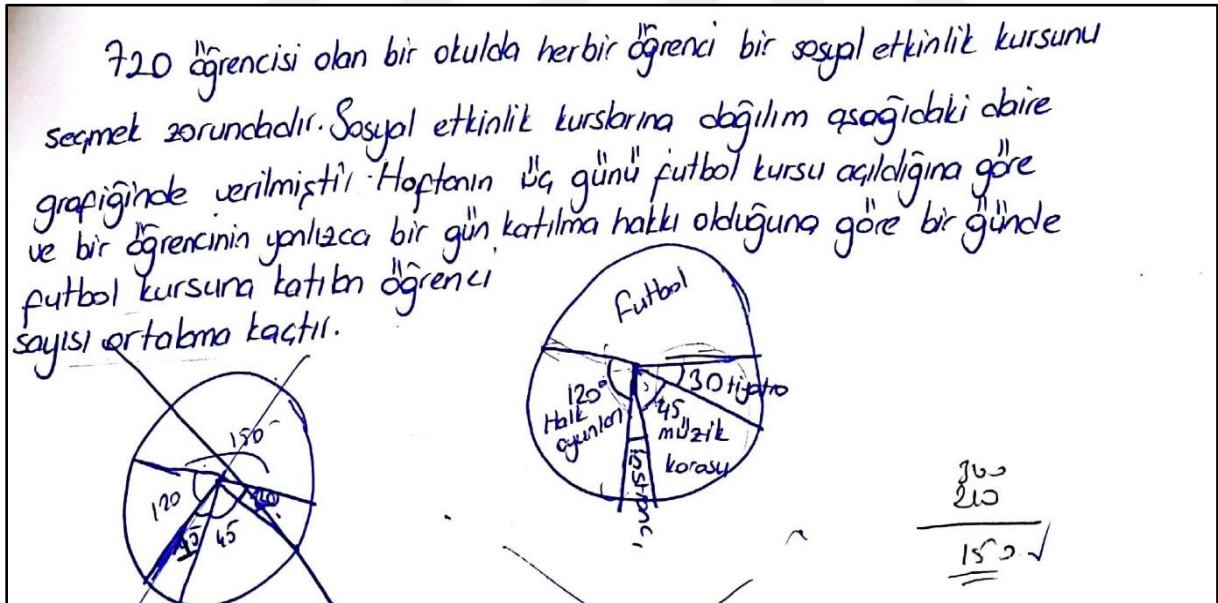 720 öğrencisi olan bir okulda herbir öğrenci bir sosyal etkinlik kursunu
seçmek zorundadır. Sosyal etkinlik kurslarına dağılım aşağıdaki daire
grafiğinde verilmiştir. Haftanın üç günü futbol kursu açıldığına göre
ve bir öğrencinin yanlızca bir gün katılma hakkı olduğuna göre bir günde
futbol kursuna katılan öğrenci
sayısı ortalama kaçtır.
Futbol
120°
Halk
oyunları
30 tiyatro
45
müzik
korosu
150
120
45
45
150